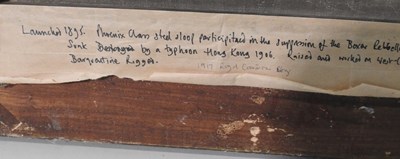 Launched 1895. Phoenix Class steel sloop participated in the suppression of the Boxer Rebelli
Sunk by a typhoon Hong Kong 1906. Raised and worked as
Barquentine Rigged.
1919